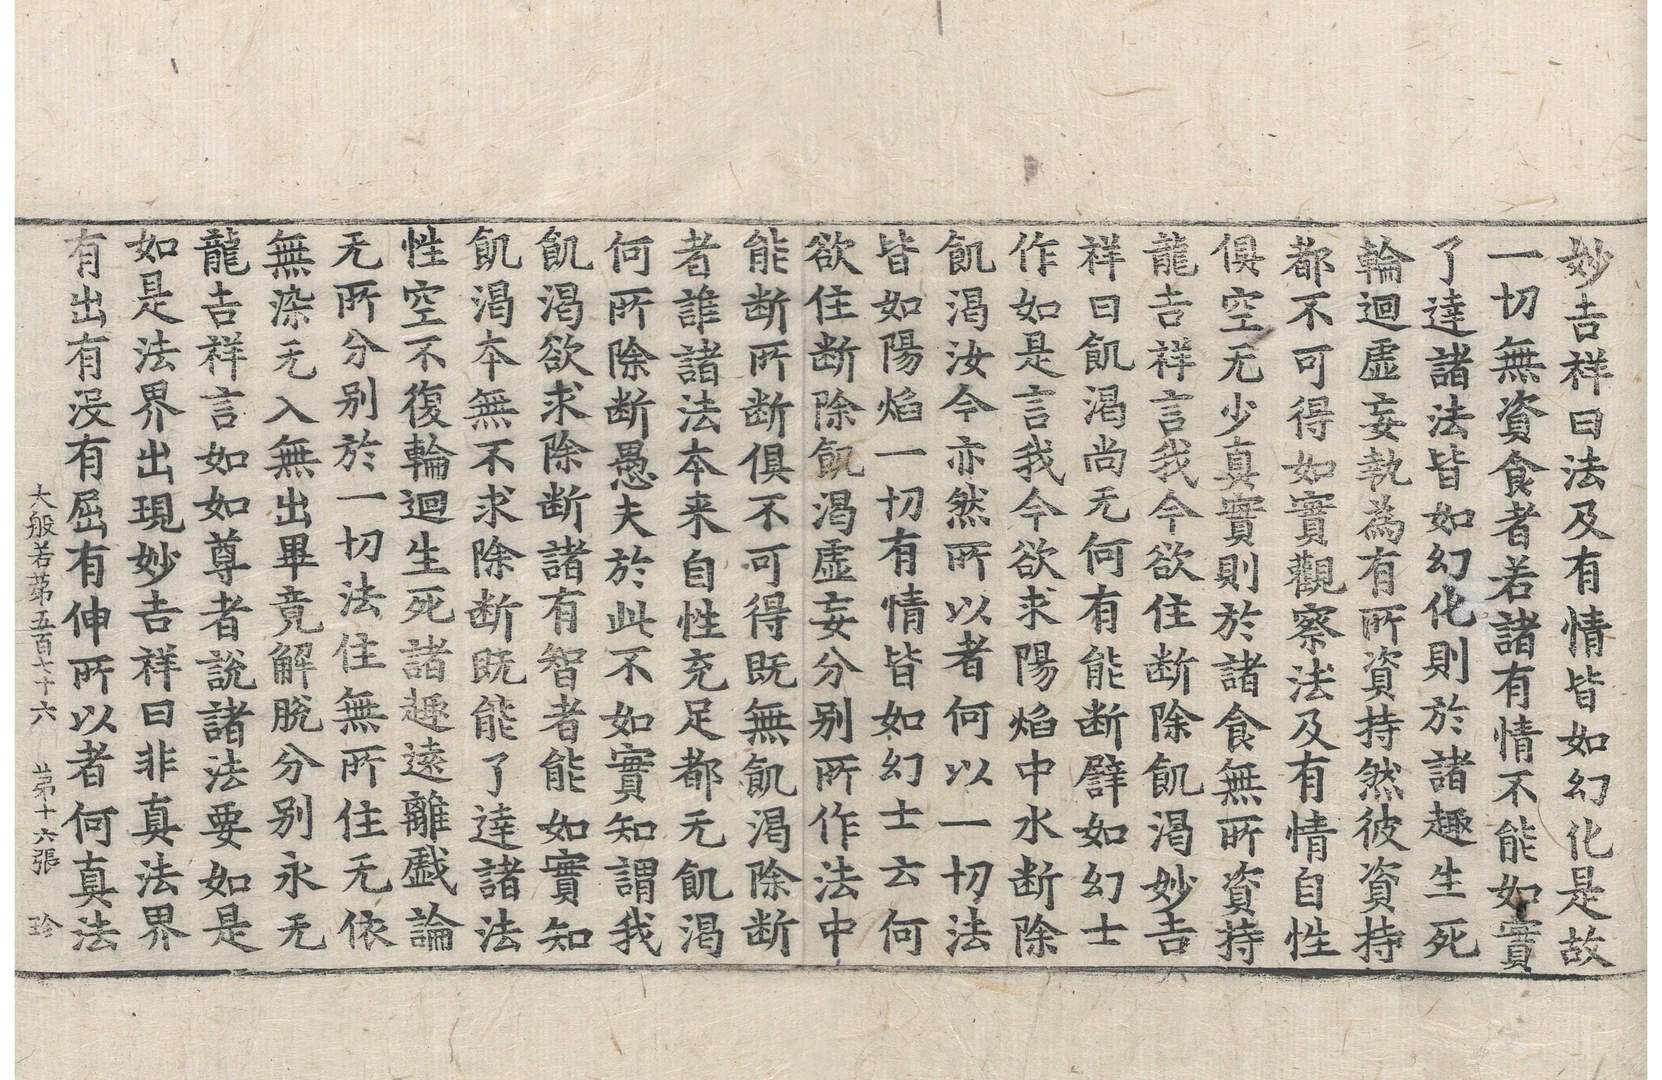 妙吉祥曰法及有情皆如幻化是故
一切無資食者若諸有情不能如實
了達諸法皆如幻化則於諸趣生死
輪迴虛妄執為有所資持然彼資持
都不可得如實觀察法及有情自性
俱空无少真實則於諸食無所資持
龍吉祥言我今欲住断除飢渴妙吉
祥曰飢渴尚无何有能断譬如幻士
作如是言我今欲求陽焰中水断除
飢渴汝今亦然所以者何以一切法
皆如陽焰一切有情皆如幻士云何
欲住断除飢渴虛妄分别所作法中
能断所断俱不可得既無飢渴除断
者誰諸法本来自性充足都无飢渴
何所除断愚夫於此不如實知謂我
飢渴欲求除断諸有智者能如實知
飢渴本無不求除断既能了達諸法
性空不復輪迴生死諸趣遠離戱論
无所分别於一切法住無所住无依
無染无入無出畢竟解脫分别永无
龍吉祥言如如尊者說諸法要如是
如是法界出現妙吉祥曰非真法界
有出有没有屈有伸所以者何真法
大般若第五百七十六 第十六張 珍